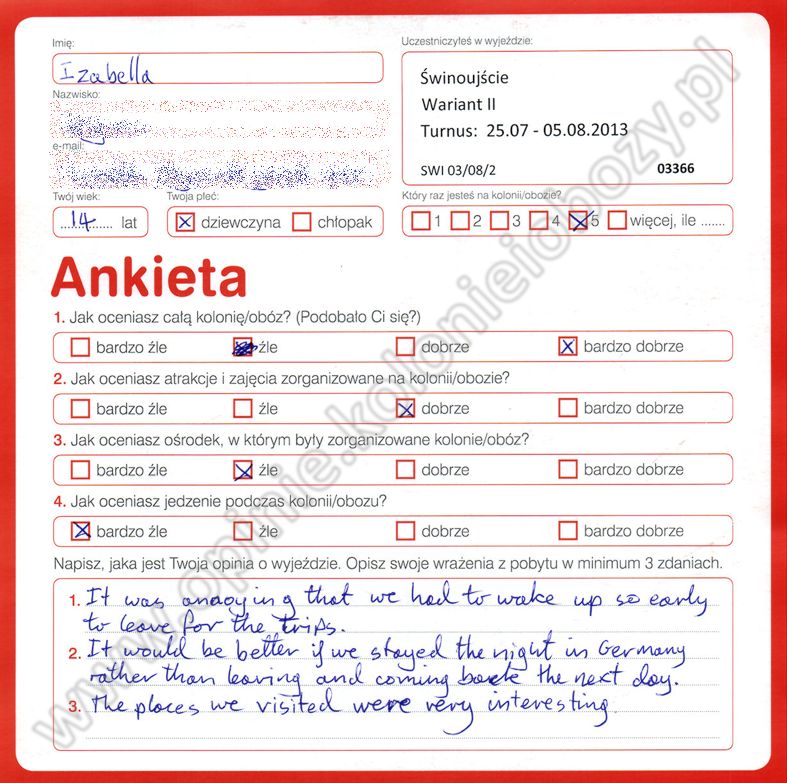 Imię:
Izabella
Nazwisko:
e-mail:
Twój wiek:
14 lat
Twoja płeć:
dziewczyna chłopak
Uczestniczyłeś w wyjeździe:
Świnoujście
Wariant II
Turnus: 25.07 - 05.08.2013
SWI 03/08/2 03366
Który raz jesteś na kolonii/obozie?
1 2 3 4 5 więcej, ile .......
Ankieta
1. Jak oceniasz całą kolonię/obóz? (Podobało Ci się?)
bardzo źle źle dobrze bardzo dobrze
2. Jak oceniasz atrakcje i zajęcia zorganizowane na kolonii/obozie?
bardzo źle źle dobrze bardzo dobrze
3. Jak oceniasz ośrodek, w którym były zorganizowane kolonie/obóz?
bardzo źle źle dobrze bardzo dobrze
4. Jak oceniasz jedzenie podczas kolonii/obozu?
bardzo źle źle dobrze bardzo dobrze
Napisz, jaka jest Twoja opinia o wyjeździe. Opisz swoje wrażenia z pobytu w minimum 3 zdaniach.
1. It was anaoying that we had to wake up so early
to leave for the trips.
2. It would be better if we stayed the night in Germany
rather than leaving and coming back the next day.
3. The places we visited were very interesting.
www.opinie.kolonieiobozy.pl